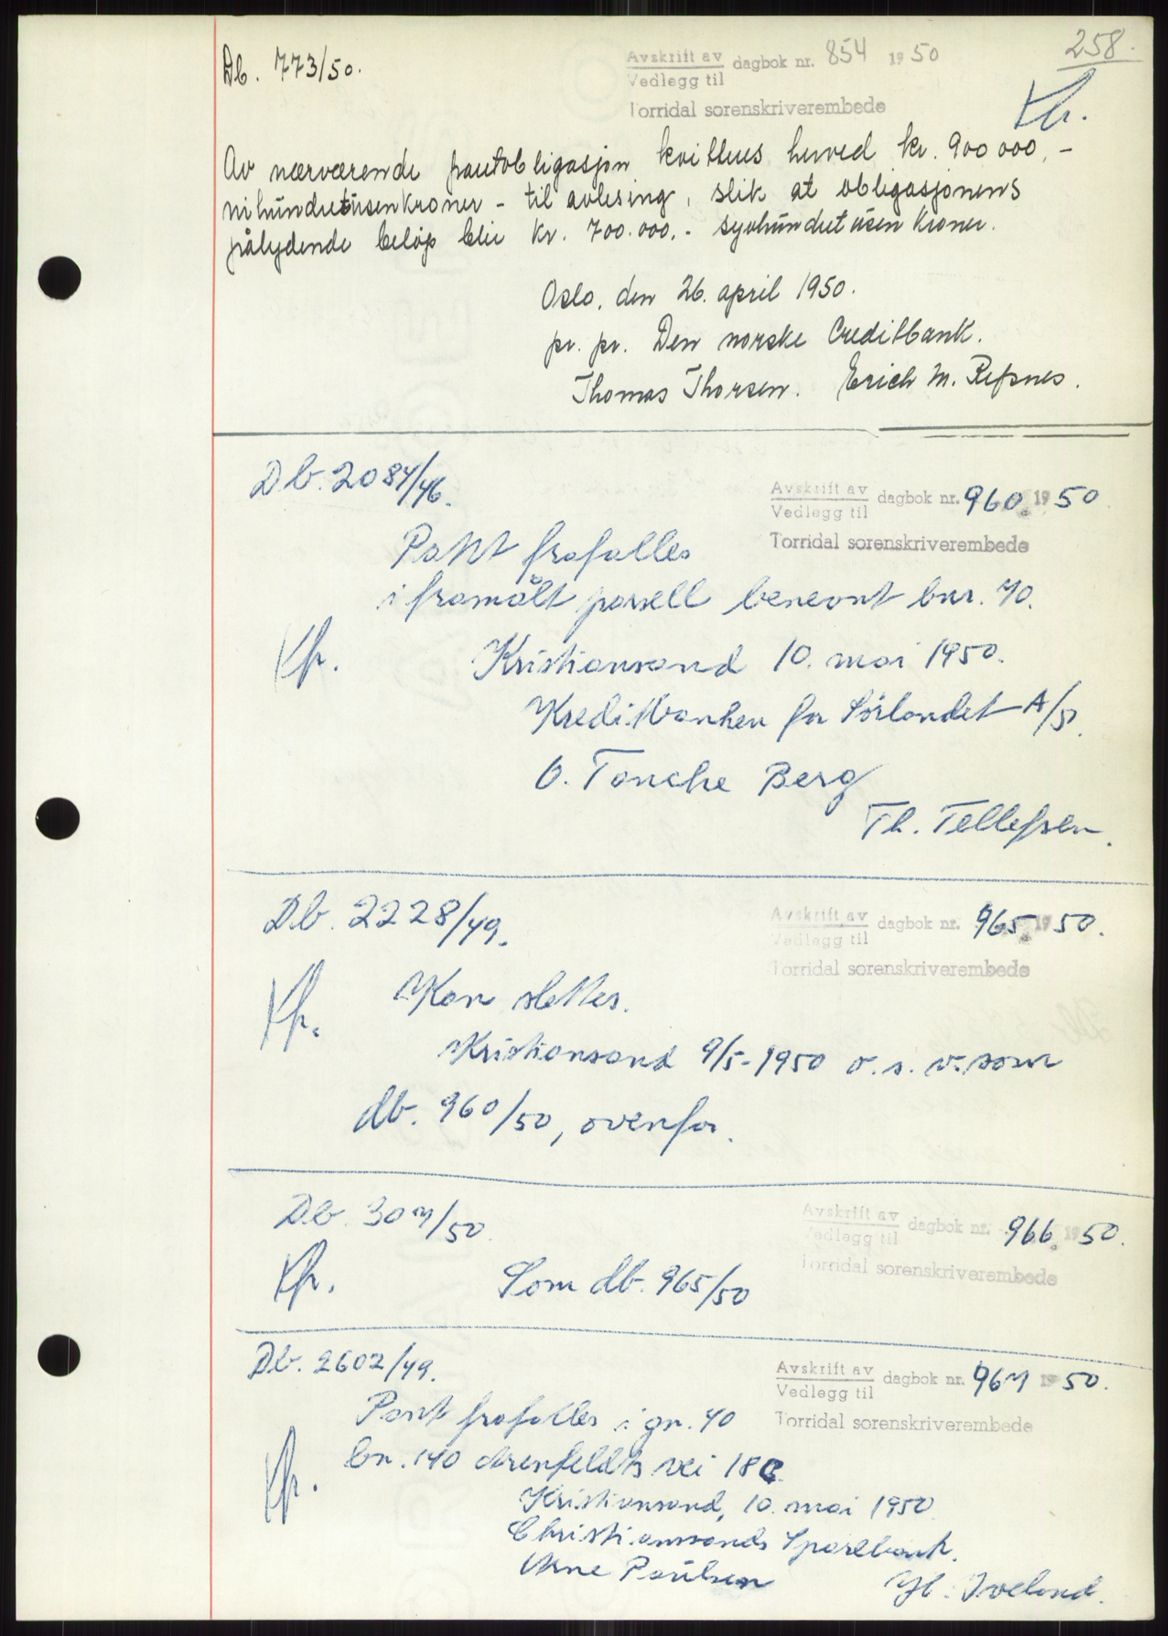 258.
Db. 773/50.
Avskrift av
Vedlegg til
dagbok nr. 854 1950
Torridal sorenskriverembede
Av nærværende pantobligasjon kvitteres herved kr. 900 000,-
nihundretusenkroner - til avlesing, slik at obligasjonens
pålydende beløp blir kr. 700.000,- syvhundretusen kroner.
Oslo, den 26. april 1950.
pr. pr. Den norske Creditbank.
Thomas Thorsen. Erich M. Refsnes.
Db. 2084/46.
Avskrift av
Vedlegg til
dagbok nr. 960. 1950.
Torridal sorenskriverembede
Pant frafalles
i framålt parsell benevnt bnr. 70.
Kristiansand 10. mai 1950.
Kreditbanken for Sørlandet A/S.
O. Tanche Berg
Th. Tellefsen.
Db. 2228/49.
Avskrift av
Vedlegg til
dagbok nr. 965. 1950.
Torridal sorenskriverembede
Kan slettes.
Kristiansand 9/5-1950 o.s.v. som
db. 960/50, ovenfor.
Db. 307/50
Avskrift av
Vedlegg til
dagbok nr. 966. 1950.
Torridal sorenskriverembede
Som db. 965/50
Db. 2602/49.
Avskrift av
Vedlegg til
dagbok nr. 967 1950.
Torridal sorenskriverembede
Pant frafalles i gnr. 40
bn. 140 Arenfeldts vei 18
Kristiansand, 10. mai 1950
Christianssands Sparebank.
Arne Paulsen
Iveland.